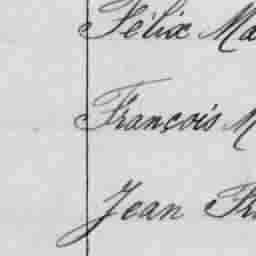 Félix Ma
François M
Jean Fr